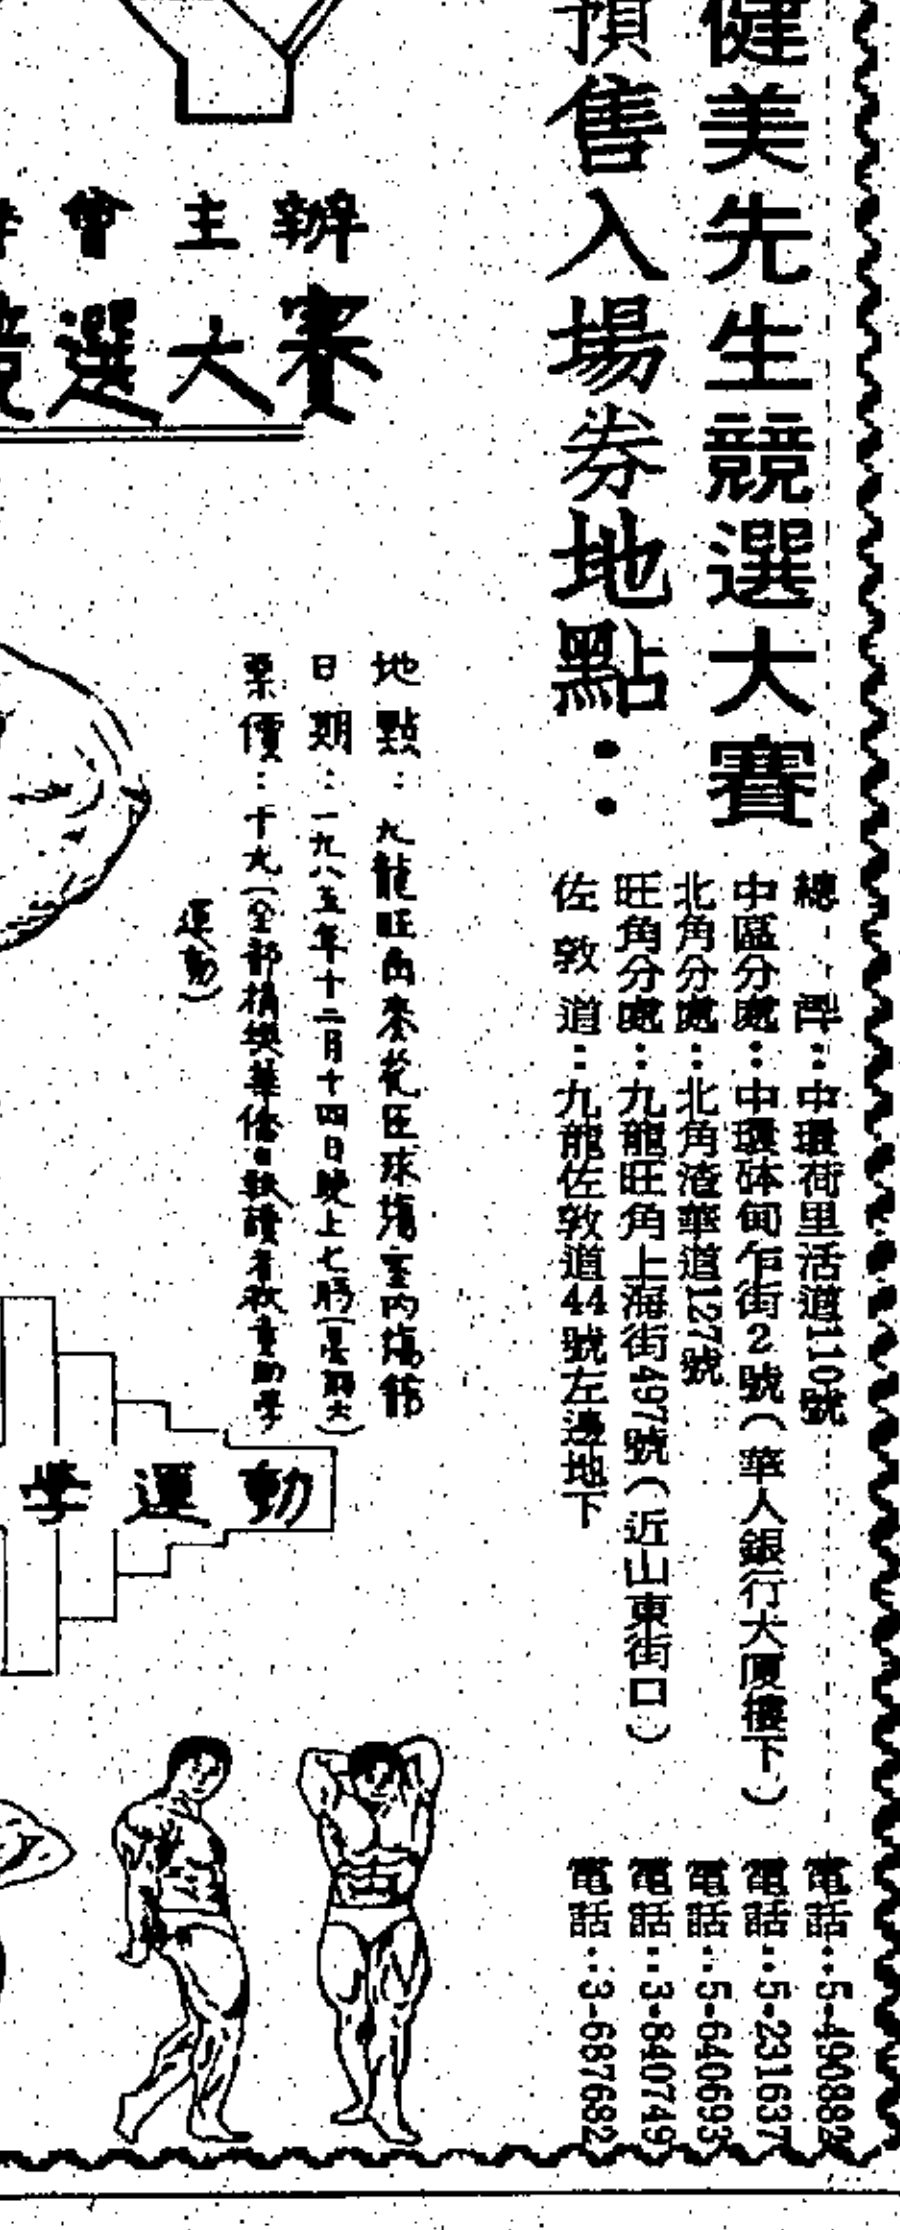 健美先生競選大賽
預售入場券地點：
總：中環荷里活道110號 電話：5-490882
中區分處：中環砵甸乍街2號（華人銀行大厦樓下） 電話：5-231637
北角分處：北角渣華道127號 電話：5-640693
旺角分處：九龍旺角上海街497號（近山東街口） 電話：3-840749
佐敦道：九龍佐敦道44號左邊地下 電話：3-687682
會主辦
競選大賽
地點：九龍旺角麥花臣球塲室內塲館
日期：一九八五年十二月十四日晚上七時（星期六）
票價：十九（全部捐獻華僑日報讀者救童助學
運動）
學運動